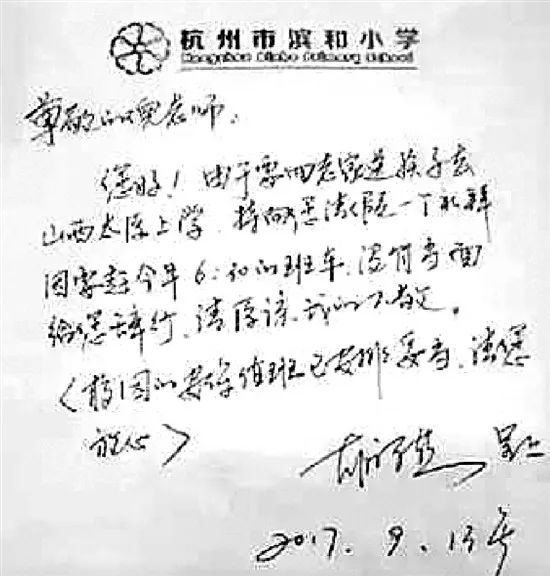 杭州市滨和小学
Hangzhou Binhe Primary School
尊敬的倪老师:
您好!由于要回老家送孩子去
山西太原上学,特向您请假一下。
因需赶今早6:30的班车,没有当面
给您辞行,请原谅我的不敬。
(校园的安保值班已安排妥当,请您
放心)
呈上
2017.9.13号